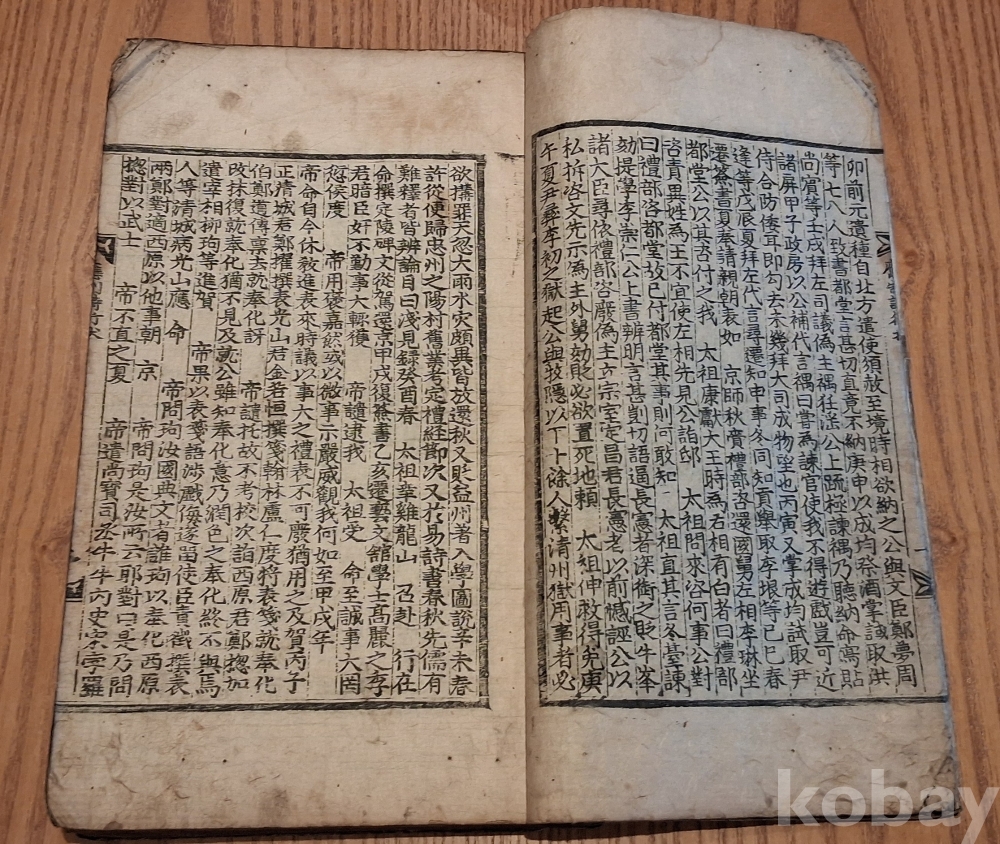 卯前元遺種自北方遣使頒赦至境時相欲納之公與文臣鄭夢周
等七八人致書都堂言甚切直竟不納庚申以成均祭酒掌試取洪
尚賓等壬戌拜左司議僞主禑狂淫公上疏極諫禑乃聽納命寫貼
諸屏甲子政房以公補代言禑曰嘗爲諫官使我不得遊戲豈可近
侍合防倭耳即勾去未幾拜大司成物望也丙寅又掌成均試取尹
逢等戊辰夏拜左代言尋遷知申事冬同知貢擧取李垠等己巳春
遷簽書夏奉請親朝表如 京師秋賫禮部咨還國舅左相李琳坐
都堂公以其咨付之我 太祖康獻大王時爲右相有白者曰禮部
咨責異姓爲王不宜使左相先見公詣邸 太祖問來咨何事公對
曰禮部咨都堂故已付都堂其事則何敢知 太祖直其言冬臺諫
劾提學李崇仁公上書辨明言甚剴切語逼長憲者深銜之貶牛峯
諸大臣尋依禮部咨廢僞主立宗室定昌君長憲者以前憾誣公以
私拆咨文先示僞主外舅劾貶必欲置死地賴 太祖伸救得免庚
午夏尹彝李初之獄起公與牧隱以下十餘人繫清州獄用事者必
欲搆罪天忽大雨水灾頗異皆放還秋又貶益州著入學圖說辛未春
許從便歸忠州之陽村舊業考定禮經節次又於易詩書春秋先儒有
難釋者皆辨論目曰淺見錄癸酉春 太祖幸雞龍山 召赴 行在
命撰定陵碑文從駕還京甲戌復簽書乙亥遷藝文館學士高麗之季
君暗臣奸不勤事大輒獲 帝譴逮我 太祖受 命至誠事大罔
愆侯度 帝用褒嘉然或以微事示嚴威觀我何如至甲戌年
帝命自今休敎進表來時議以事大之禮表不可廢猶用之及賀丙子
正清城君鄭擢撰表光山君金若恒撰箋翰林盧仁度將表箋就奉化
伯鄭道傳稟去就奉化訝 帝譴托故不考校次詣西原君鄭摠加
改抹復就奉化猶不見及就公雖知奉化意乃潤色之奉化終不與焉
遣宰相柳珣等進賀 帝果以表箋語涉戲侮遂留使臣責徵撰表
人等清城病光山應 命 帝問珣汝國典文者誰珣以奉化西原
兩鄭對適西原以他事朝 京 帝問珣是汝所云耶對曰是乃問
摠對以武士 帝不直之夏 帝遣尚寶司丞牛牛內史宋孛羅